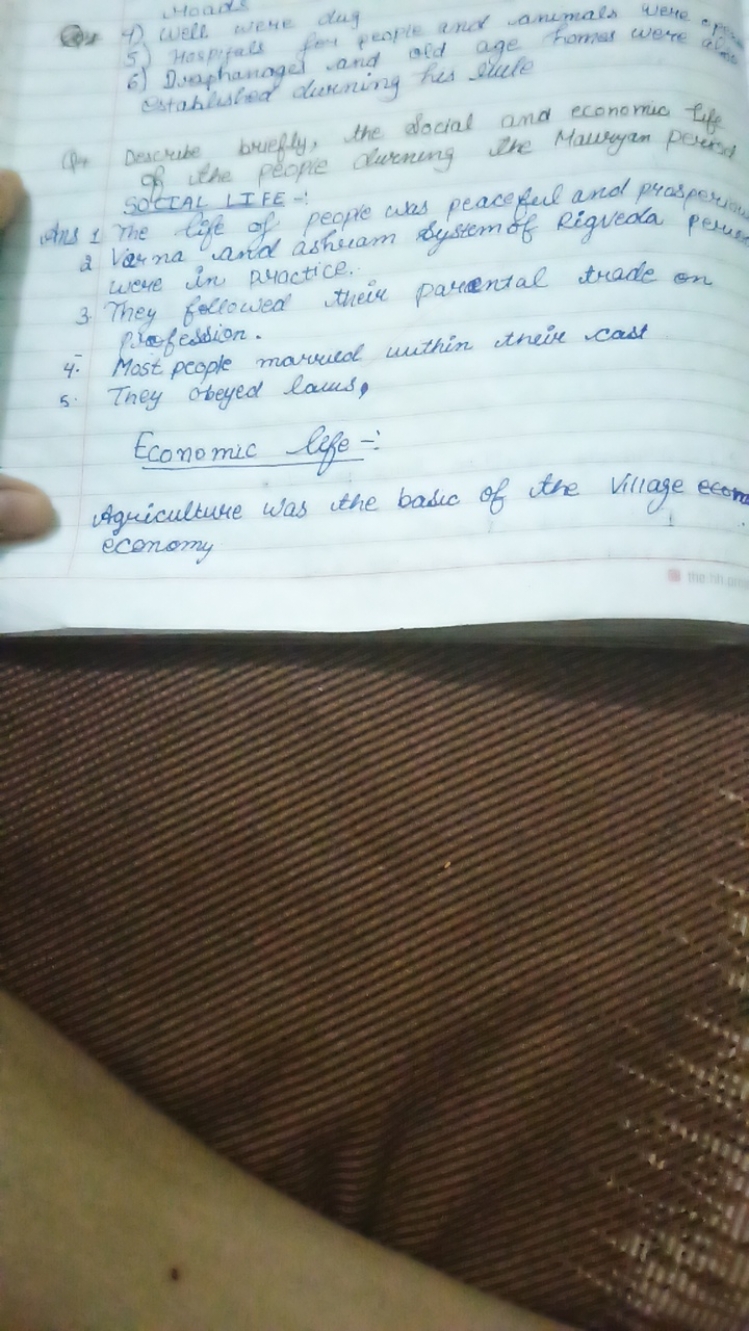 4) Well were dug
5) Hospitals for people and animals were
6) Doraphanages and old age homes were also
established durning his rule
Describe briefly, the Social and economic life
of the people durning the Mauryan period
SOCIAL LIFE -:
Ans 1 The life of people was peaceful and
2 Varna and ashram System of Rigveda
were in practice.
3. They followed their parental trade on
profession.
4. Most people married within their cast
5. They obeyed laws,
Economic life -:
Agriculture was the basic of the Village econo
economy